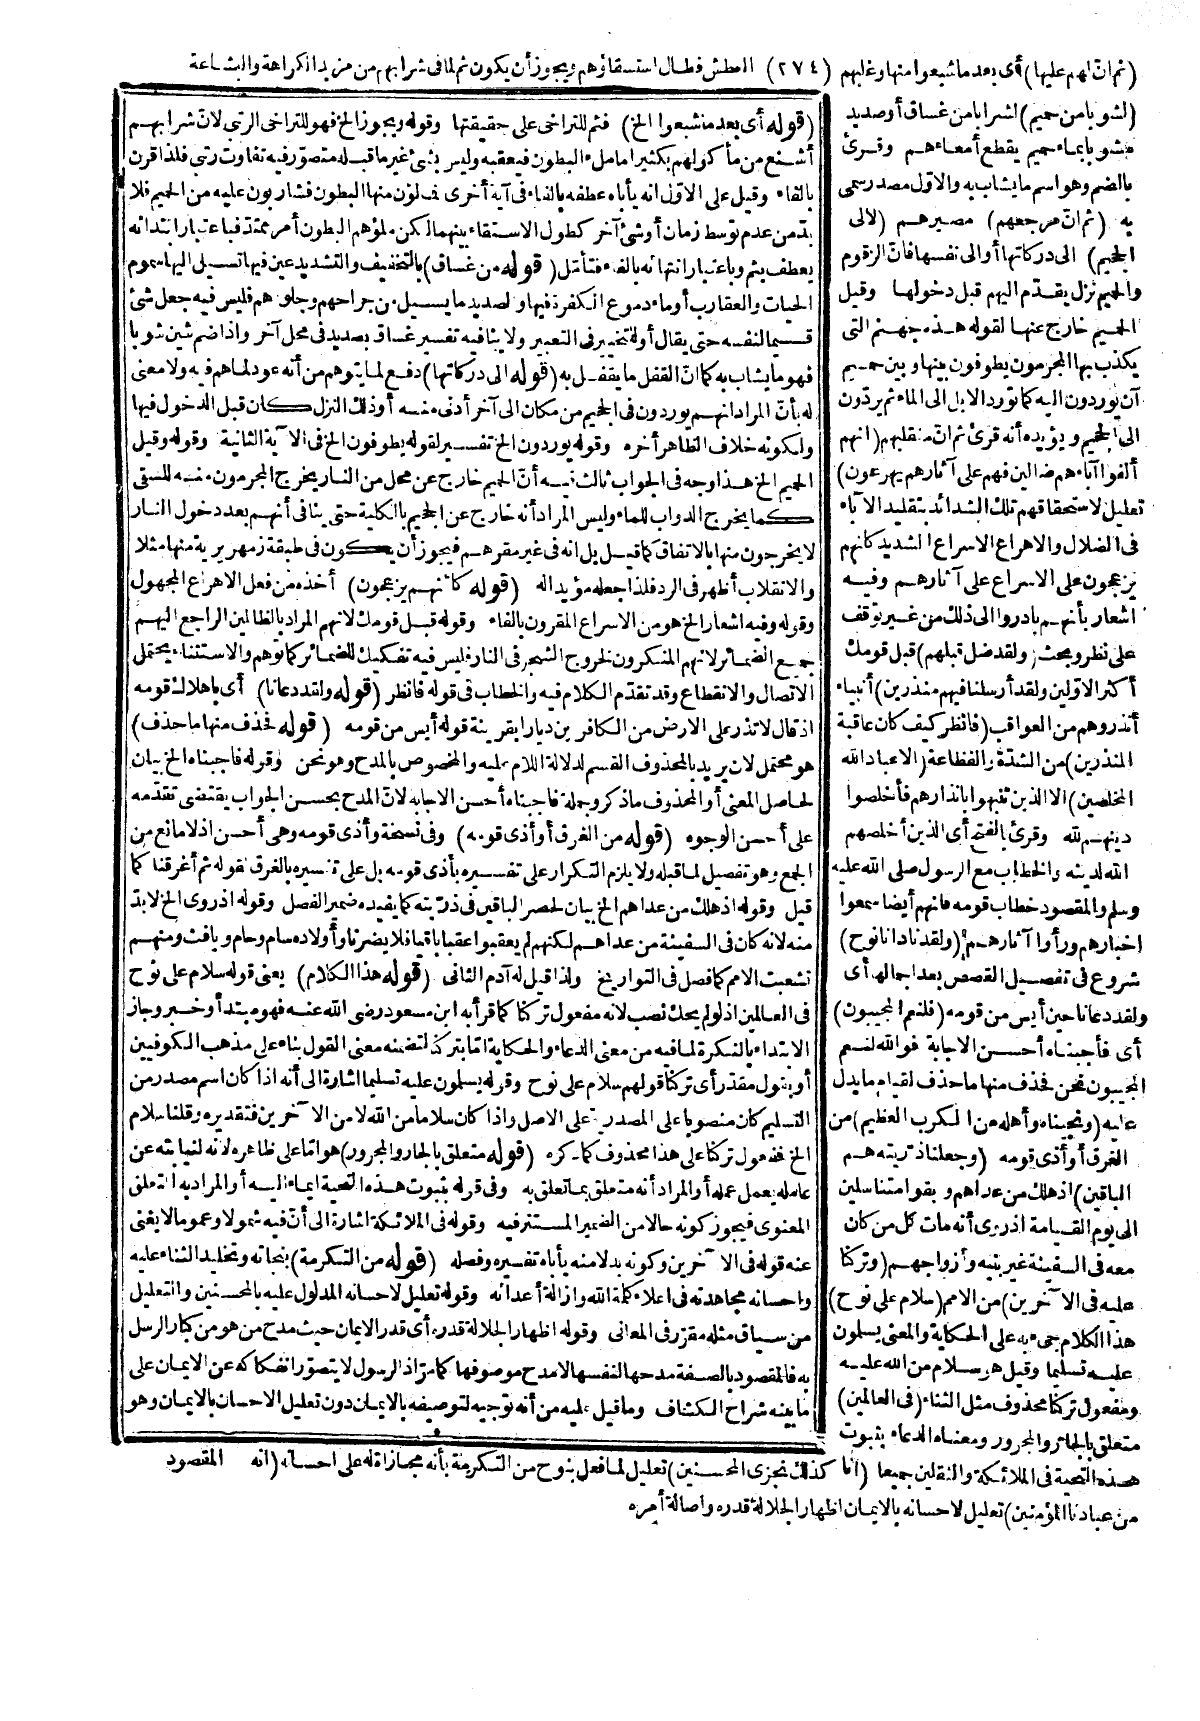 (ثم ان لهم عليها) أى بعد ما شبعوا منها وغلبهم (٢٧٤) العطش وطال استسقاؤهم ويجوز أن يكون ثم لما فى شرابهم من مزيد الكراهة والبشاعة
(لشوبا من حميم) لشرابا من غساق أو صديد
مشوبا بماء حميم يقطع أمعاءهم وقرئ
بالضم وهو اسم ما يشاب به والاول مصدر سمى
به (ثم ان مرجعهم) مصيرهم (لالى
الجحيم) الى دركاتها أو الى نفسها فان الزقوم
والحميم نزل يقدّم اليهم قبل دخولها وقيل
الحميم خارج عنها لقوله هذه جهنم التى
يكذب بها المجرمون يطوفون بينها وبين حميم
آن يوردون اليه كما تورد الابل الى الماء ثم يردّون
الى الجحيم ويؤيده أنه قرئ ثم ان منقلبهم (انهم
ألفوا آباءهم ضالين فهم على آثارهم يهرعون)
تعليل لاستحقاقهم تلك الشدائد بتقليد الآباء
فى الضلال والاهراع الاسراع الشديد كأنهم
يزعجون على الاسراع على آثارهم وفيه
اشعار بأنهم بادروا الى ذلك من غير توقف
على نظر وبحث (ولقد ضل قبلهم) قبل قومك
أكثر الاوّلين ولقد أرسلنا فيهم منذرين) أنبياء
أنذروهم من العواقب (فانظر كيف كان عاقبة
المنذرين) من الشدّة والفظاعة (الا عباد الله
المخلصين) الا الذين تنبهوا بانذارهم فأخلصوا
دينهم لله وقرئ بالفتح أى الذين أخلصهم
الله لدينه والخطاب مع الرسول صلى الله عليه
وسلم والمقصود خطاب قومه فانهم أيضا سمعوا
اخبارهم ورأوا آثارهم (ولقد نادانا نوح)
شروع فى تفصيل القصص بعد اجمالها أى
ولقد دعانا حين أيس من قومه (فلنعم المجيبون)
أى فأجبناه أحسن الاجابة فوالله لنعم
المجيبون نحن فحذف منها ما حذف لقيام ما يدل
عليه (ونجيناه وأهله من الكرب العظيم) من
الغرق أو أذى قومه (وجعلنا ذريته هم
الباقين) اذ هلك من عداهم وبقوا متناسلين
الى يوم القيامة اذ روى أنه مات كل من كان
معه فى السفينة غير بنيه وأزواجهم (وتركنا
عليه فى الآخرين) من الامم (سلام على نوح)
هذا الكلام جىء به على الحكاية والمعنى يسلمون
عليه تسليما وقيل هو سلام من الله عليه
ومفعول تركنا محذوف مثل الثناء (فى العالمين)
متعلق بالجار والمجرور ومعناه الدعاء بثبوت
هذه التحية فى الملائكة والثقلين جميعا (انا كذلك نجزى المحسنين) تعليل لما فعل بنوح من التكرمة بأنه مجازاة له على احسانه (انه
من عبادنا المؤمنين) تعليل لاحسانه بالايمان اظهارا لجلالة قدره وأصالة أمره
(قوله أى بعد ما شبعوا الخ) فثم للتراخى على حقيقتها وقوله ويجوز الخ فهو للتراخى الرتبى لان شرابهم
أشنع من مأكولهم بكثير اما ملء البطون فيعقبه وليس بشئ غير ما قبله متصوّر فيه تفاوت رتبى فلذا قرن
بالفاء وقيل على الاوّل انه يأباه عطفه بالفاء فى آية أخرى فمالؤن منها البطون فشاربون عليه من الحميم فلا
بدّ من عدم توسط زمان أو شئ آخر كطول الاستسقاء بينهما لكن ملؤهم البطون أمر ممتدّ فباعتبار ابتدائه
يعطف بثم وباعتبار انتهائه بالفاء فتأمّل (قوله من غساق) بالتخفيف والتشديد عين فيها تسيل اليها سموم
الحيات والعقارب أو ماء دموع الكفرة فيها والصديد ما يسيل من جراحهم وجلودهم فليس فيه جعل شئ
قسيما لنفسه حتى يقال أو للتخيير فى التعبير ولا ينافيه تفسير غساق بصديد فى محل آخر واذا ضم شين شوبا
فهو ما يشاب به كما ان القفل ما يقفل به (قوله الى دركاتها) دفع لما يتوهم من أنه عود لما هم فيه ولا معنى
له بأنّ المراد انهم يوردون فى الجحيم من مكان الى آخر أدنى منه أو ذلك النزل كان قبل الدخول فيها
ولكونه خلاف الظاهر أخره وقوله يوردون الخ تفسير لقوله يطوفون الخ فى الآية الثانية وقوله وقيل
الحميم الخ هذا وجه فى الجواب ثالث فيه أنّ الحميم خارج عن محل من النار يخرج المجرمون منه للسقى
كما يخرج الدواب للماء وليس المراد أنه خارج عن الجحيم بالكلية حتى ينافى أنهم بعد دخول النار
لا يخرجون منها بالاتفاق كما قيل بل انه فى غير مقرهم فيجوز أن يكون فى طبقة زمهريرية منها مثلا
والانقلاب أظهر فى الرد فلذا جعله مؤيدا له (قوله كأنهم يزعجون) أخذه من فعل الاهراع المجهول
وقوله وفيه اشعار الخ هو من الاسراع المقرون بالفاء وقوله قبل قومك لانهم المراد بالظالمين الراجع اليهم
جميع الضمائر لانهم المنكرون لخروج الشجر فى النار فليس فيه تفكيك للضمائر كما توهم والاستثناء يحتمل
الاتصال والانقطاع وقد تقدّم الكلام فيه والخطاب فى قوله فانظر (قوله ولقد دعانا) أى باهلاك قومه
اذ قال لا تذر على الارض من الكافرين ديارا بقرينة قوله أيس من قومه (قوله فحذف منها ما حذف)
هو محتمل لان يريد بالمحذوف القسم لدلالة اللام عليه والمخصوص بالمدح وهو نحن وقوله فأجبناه الخ بيان
لحاصل المعنى أو المحذوف ما ذكر وجملة فأجبناه أحسن الاجابة لانّ المدح بحسن الجواب يقتضى تقدّمه
على أحسن الوجوه (قوله من الغرق أو أذى قومه) وفى نسخة وأذى قومه وهى أحسن اذ لا مانع من
الجمع وهو تفصيل لما قبله ولا يلزم التكرار على تفسيره بأذى قومه بل على تفسيره بالغرق لقوله ثم أغرقنا كما
قيل وقوله اذ هلك من عداهم الخ بيان لحصر الباقين فى ذرّيته كما يفيده ضمير الفصل وقوله اذ روى الخ لا بدّ
منه لانه كان فى السفينة من عداهم لكنهم لم يعقبوا عقبا باقيا فلا يضرنا وأولاده سام وحام ويافث ومنهم
تشعبت الامم كما فصل فى التواريخ ولذا قيل له آدم الثانى (قوله هذا الكلام) يعنى قوله سلام على نوح
فى العالمين اذ لو لم يحك نصب لانه مفعول تركنا كما قرأ به ابن مسعود رضى الله عنه فهو مبتدأ وخبر وجاز
الابتداء بالنكرة لما فيه من معنى الدعاء والحكاية امّا بترك لتضمنه معنى القول بناء على مذهب الكوفيين
أو بقول مقدّر أى تركنا قولهم سلام على نوح وقوله يسلمون عليه تسليما اشارة الى أنه اذا كان اسم مصدر من
التسليم كان منصوبا على المصدر على الاصل واذا كان سلاما من الله لا من الآخرين فتقديره وقلنا سلام
الخ فمفعول تركنا على هذا محذوف كما ذكره (قوله متعلق بالجار والمجرور) هو اما على ظاهره لانه لنيابته عن
عامله يعمل عمله أو المراد أنه متعلق بما تعلق به وفى قوله بثبوت هذه التحية ايماء اليه أو المراد به التعلق
المعنوى فيجوز كونه حالا من الضمير المستتر فيه وقوله فى الملائكة اشارة الى أنّ فيه شمولا وعموما لا يغنى
عنه قوله فى الآخرين وكونه بدلا منه يأباه تفسيره وفصله (قوله من التكرمة) بنجاته وتخليد الثناء عليه
واحسانه مجاهدته فى اعلاء كلمة الله وازالة أعدائه وقوله تعليل لاحسانه المدلول عليه بالمحسنين والتعليل
من سياق مثله مقرّر فى المعانى وقوله اظهارا لجلالة قدره أى قدر الايمان حيث مدح من هو من كبار الرسل
به فالمقصود بالصفة مدحها لنفسها لا مدح موصوفها كما مرّ اذ الرسول لا يتصوّر انفكاكه عن الايمان على
ما بينه شراح الكشاف وما قيل عليه من أنه توجيه لتوصيفه بالايمان دون تعليل الاحسان بالايمان وهو
المقصود